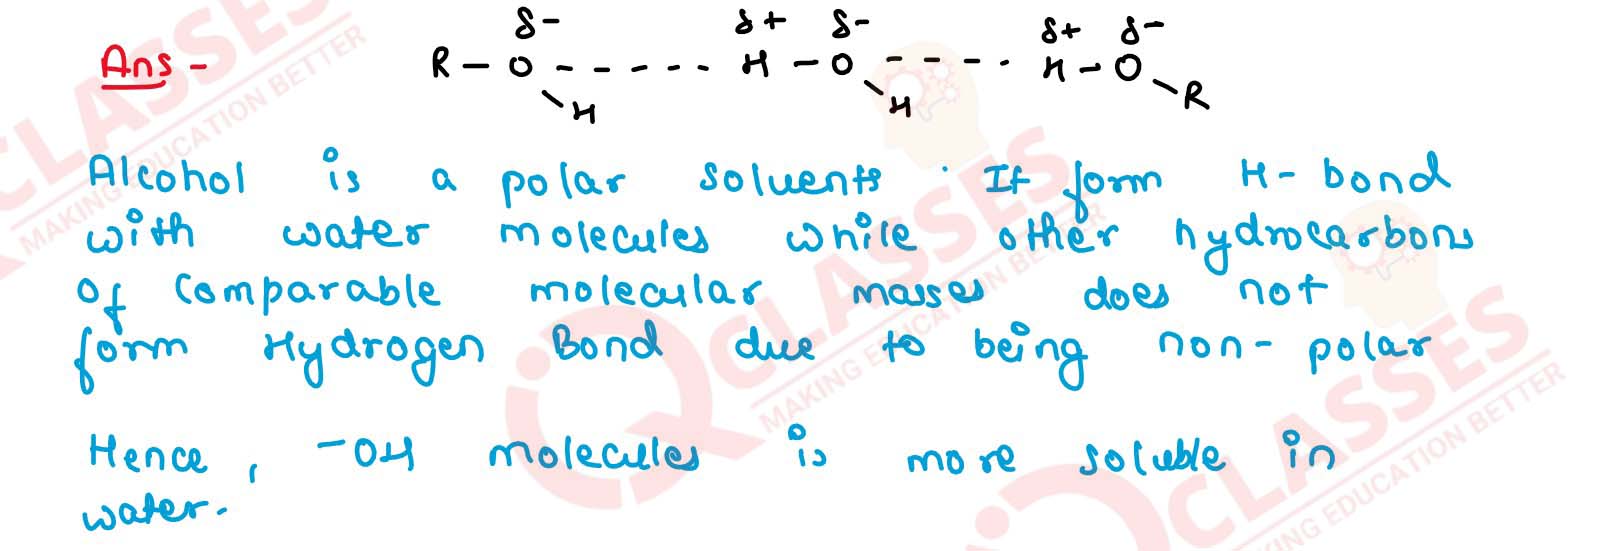 δ- δ+ δ- δ+ δ-
Ans - R - O - - - - - - H - O - - - - - H - O
H H R
Alcohol is a polar solvents. It form H-bond
with water molecules while other hydrocarbons
of comparable molecular masses does not
form Hydrogen Bond due to being non-polar
Hence, -OH molecules is more soluble in
water.
CLASSES
MAKING EDUCATION BETTER
CLASSES
MAKING EDUCATION BETTER
CLASSES
MAKING EDUCATION BETTER